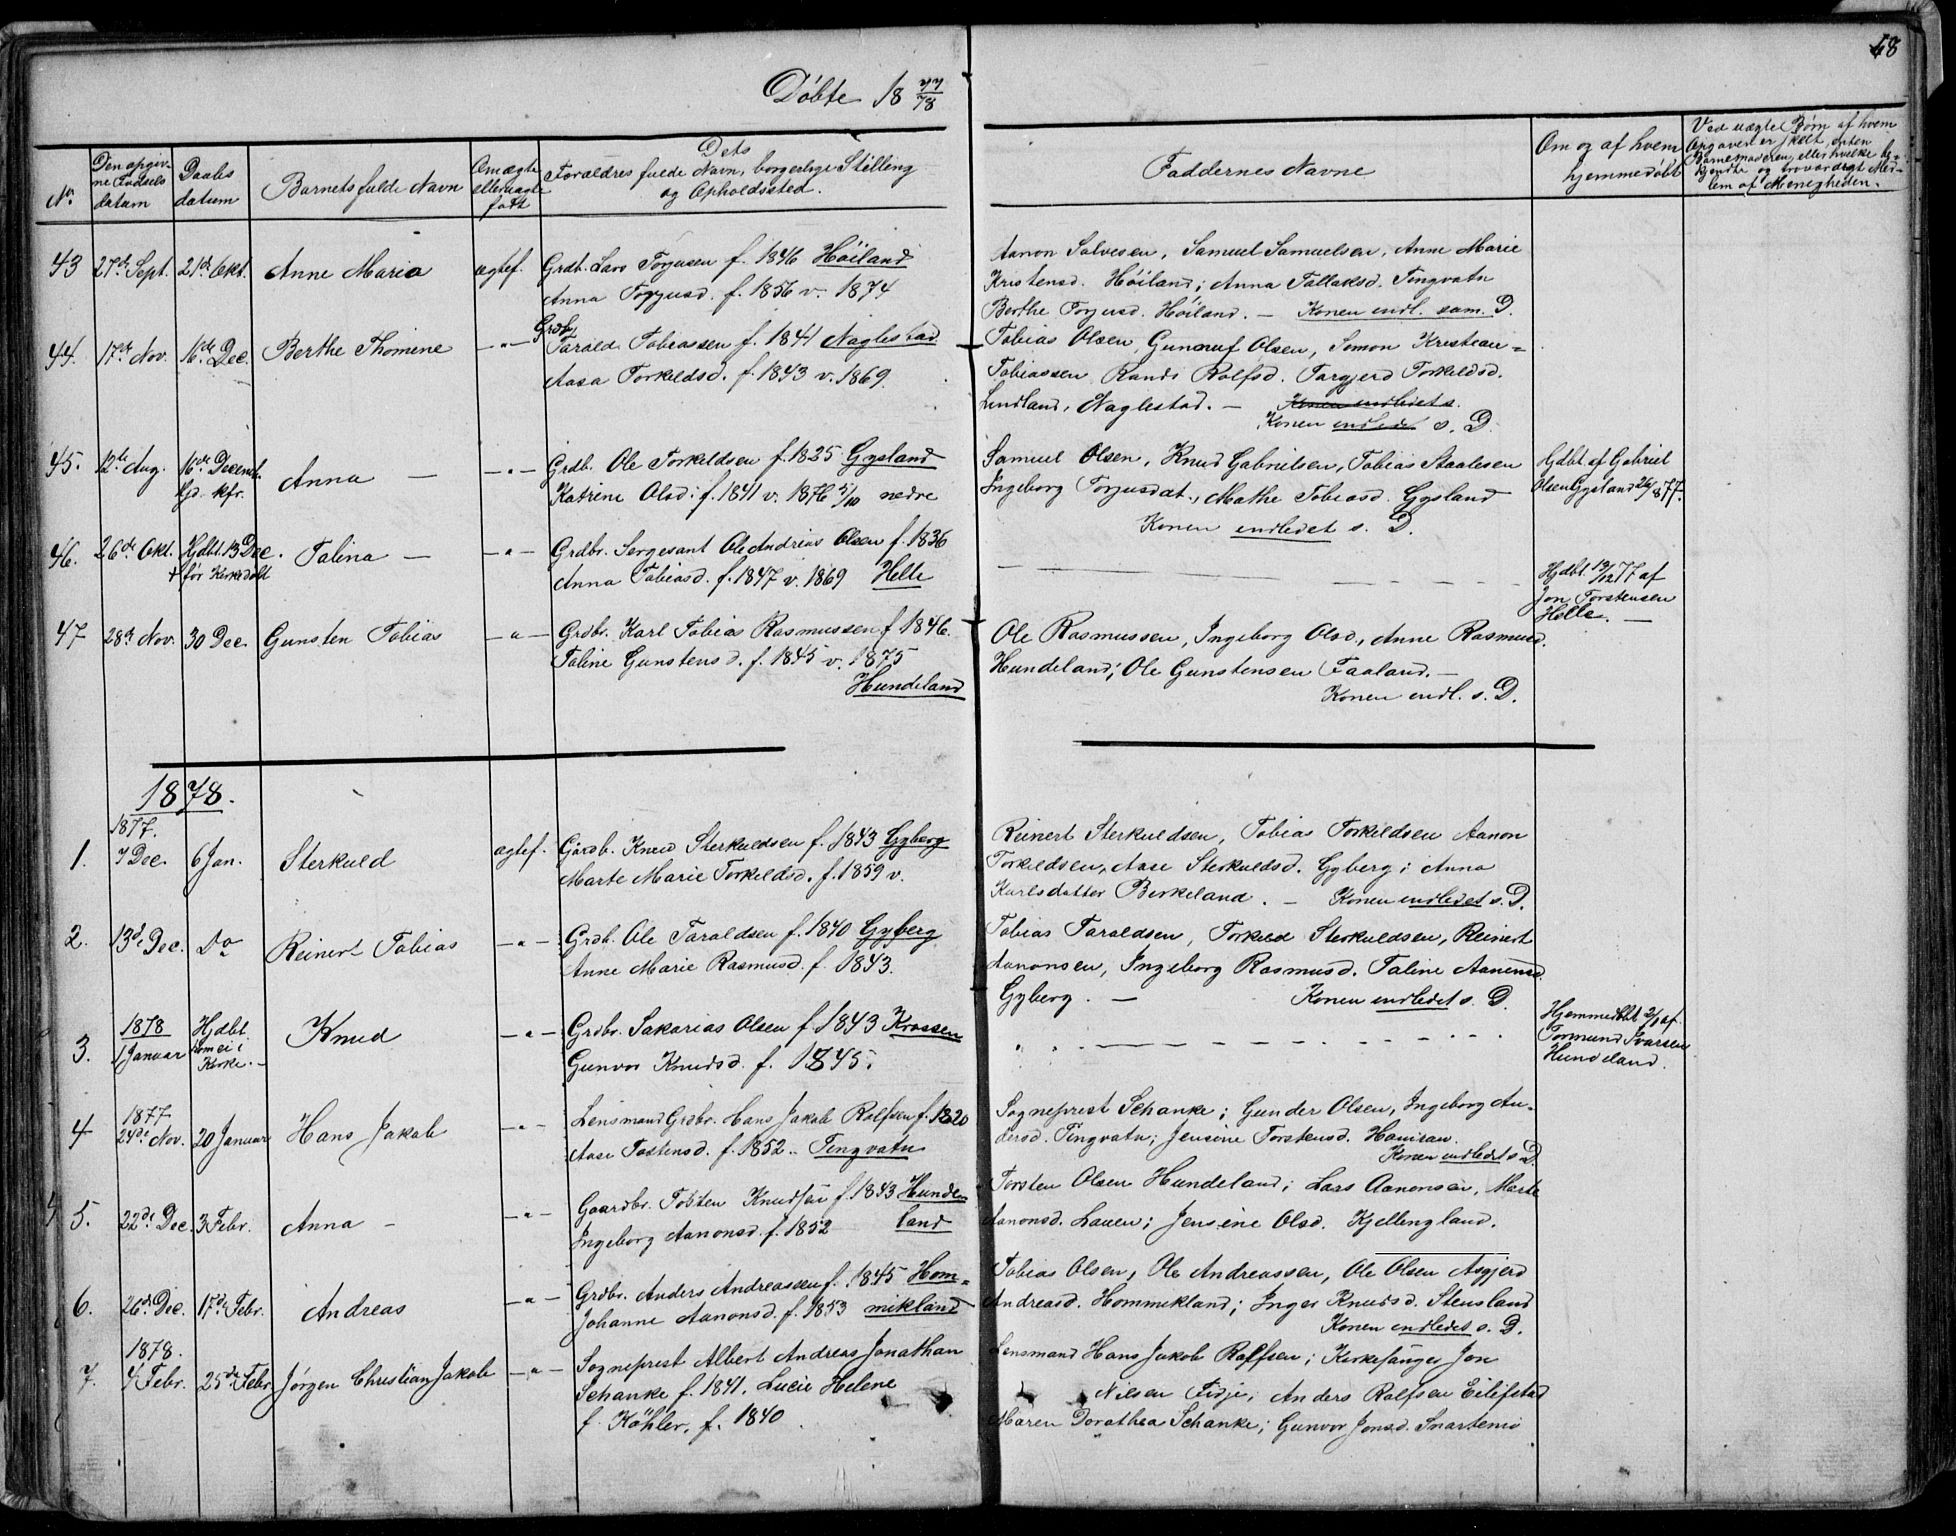 48
Döbte 18 77/78
No.
Den opgiv-
ne Fødsels
datum
Daabs
datum
Barnets fulde Navn
Om ægte
eller uægte
født
Dets
Forældres fulde Navn, borgerlige Stilling
og Opholdssted.
Faddernes Navne
Om og af hvem
hjemmedöbt
Ved uægte Börn af hvem
Opgaven er skeet, enten
Barnemoderen, eller hvilke be-
kjendte og troværdige Med-
lem af Menigheden.
43 27de Sept. 21de Okt. Anne Maria ægtef. Grdb. Lars Torjusen f. 1846 Höiland
Anna Torjusd. f. 1856 v. 1874
Aanon Salvesen, Samuel Samuelsen, Anne Marie
Kristensd. Höiland; Anna Tallaksd. Tingvatn
Berthe Torjusd. Höiland. — Konen indl. sam. D.
44. 17de Nov. 16de Dec. Berthe Thomine —"— Grdb.
Tarald Tobiassen f. 1841 Naglestad
Aasa Torkeldsd. f. 1843 v. 1869.
Tobias Olsen, Gunnuf Olsen, Simon Kristian=
Tobiassen Randi Rolfsd. Targjerd Torkeldsd.
Lindland, Naglestad. — Konen indledet s.
Konen indledet s. D.
45. 12te Aug. 16de Decemb.
Hjd. kfr. Anna — —"— Grdb. Ole Torkeldsen f. 1825 Gysland
Katrine Olsd. f. 1841 v. 1876 5/10 nedre
Samuel Olsen, Knud Gabrielsen, Tobias Staalesen
Ingeborg Torjusdat., Mathe Tobiasd. Gysland
Konen indledet s. D.
Hjdbt. af Gabriel
Olsen Gysland 26/8 77.
46. 26de Okt. Hjdbt. 13 Dec.
+ før Kirkedåbt Talina — —"— Grdbr. Sergesant Ole Andreas Olsen f. 1836
Anna Tobiasd. f. 1847 v. 1869 Helle
Hjdbt. 13/12 77 af
Jon Torstensen
Helle. —
47 28de Nov. 30 Dec. Gunsten Tobias —"— Grdbr. Karl Tobias Rasmussen f. 1846.
Taline Gunstensd. f. 1845 v. 1875
Hundeland
Ole Rasmussen, Ingeborg Olsd., Anne Rasmusd.
Hundeland; Ole Gunstensen Faaland. —
Konen indl. s. D.
1878.
1877.
1. 7 Dec. 6 Jan. Sterkuld ægtef. Gårdb. Knud Sterkuldsen f. 1843 Gyberg
Marte Marie Torkeldsd. f. 1859 v.
Reinert Sterkuldsen, Tobias Torkildsen Aanon
Torkildsen, Aase Sterkuldsd. Gyberg; Anna
Karlsdatter Birkeland. — Konen indledet s. D.
2. 13de Dec. Do Reinert Tobias —"— Grdb. Ole Taraldsen f. 1840 Gyberg
Anne Marie Rasmusd. f. 1843.
Tobias Taraldsen, Torkild Sterkuldsen, Reinert
Aanonsen, Ingeborg Rasmusd. Taline Aanensd.
Gyberg. — Konen indledet s. D.
3. 1878
1 Januar Hjdbt.
kom ei i
Kirke. — Knud —"— Grdbr. Sakarias Olsen f. 1843 Krossen
Gunvor Knudsd. f. 1845.
Hjemmedöbt 2/1 af
Tormund Ivarsen
Hundeland.
4 1877
24de Nov. 20 Januar Hans Jakob —"— Lensmand Grdbr. Hans Jakob Rolfsen f. 1820
Aase Tostensd. f. 1852. Tingvatn
Sogneprest Schanke; Gunder Olsen, Ingeborg An-
dersd. Tingvatn; Jensine Torstensd. Haniran.
Konen indledet s. D.
5. 22de Dec. 3 Febr. Anna — —"— Gaardbr. Tosten Knudsen f. 1843 Hunde-
Ingeborg Aanonsd. f. 1852 land
Torsten Olsen Hundeland; Lars Aanonsen, Marte
Aanonsd. Lauen; Jensine Olsd. Kjellingland.
6. 26de Dec. 17de Febr. Andreas —"— Grdbr. Anders Andreassen f. 1845 Hom=
Johanne Aanonsd. f. 1853 mikland
Tobias Olsen, Ole Andreassen, Ole Olsen Asgjerd
Andreasd. Hommikland; Inger Knudsd. Stensland
Konen indledet s. D.
1878.
7. 4 Febr. 25de Febr. Jörgen Christian Jakob —"— Sogneprest Albert Andreas Jonathan
Schanke f. 1841. Lucie Helene
f. Köhler, f. 1840.
Lensmand Hans Jakob Rolfsen; Kirkesanger Jon
Nilsen Fidje; Anders Rolfsen Eilifstad
Maren Dorothea Schanke; Gunvor Jonsd. Snartemo